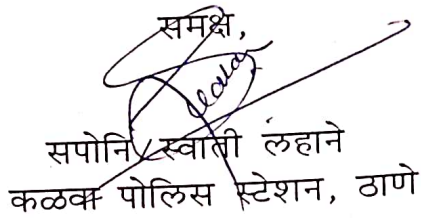 समक्ष,
सपोनि स्वाती लहाने
कळवा पोलिस स्टेशन, ठाणे